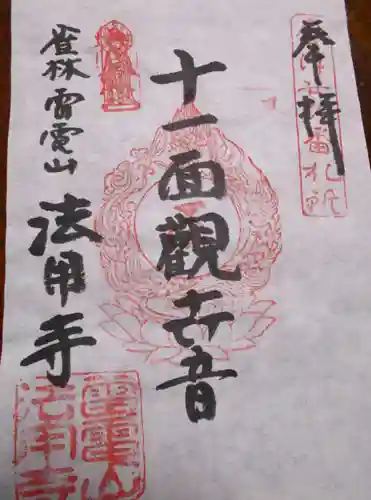 奉拝
十一面觀世音
雀林 雷電山 法用寺
雷電山
法用寺